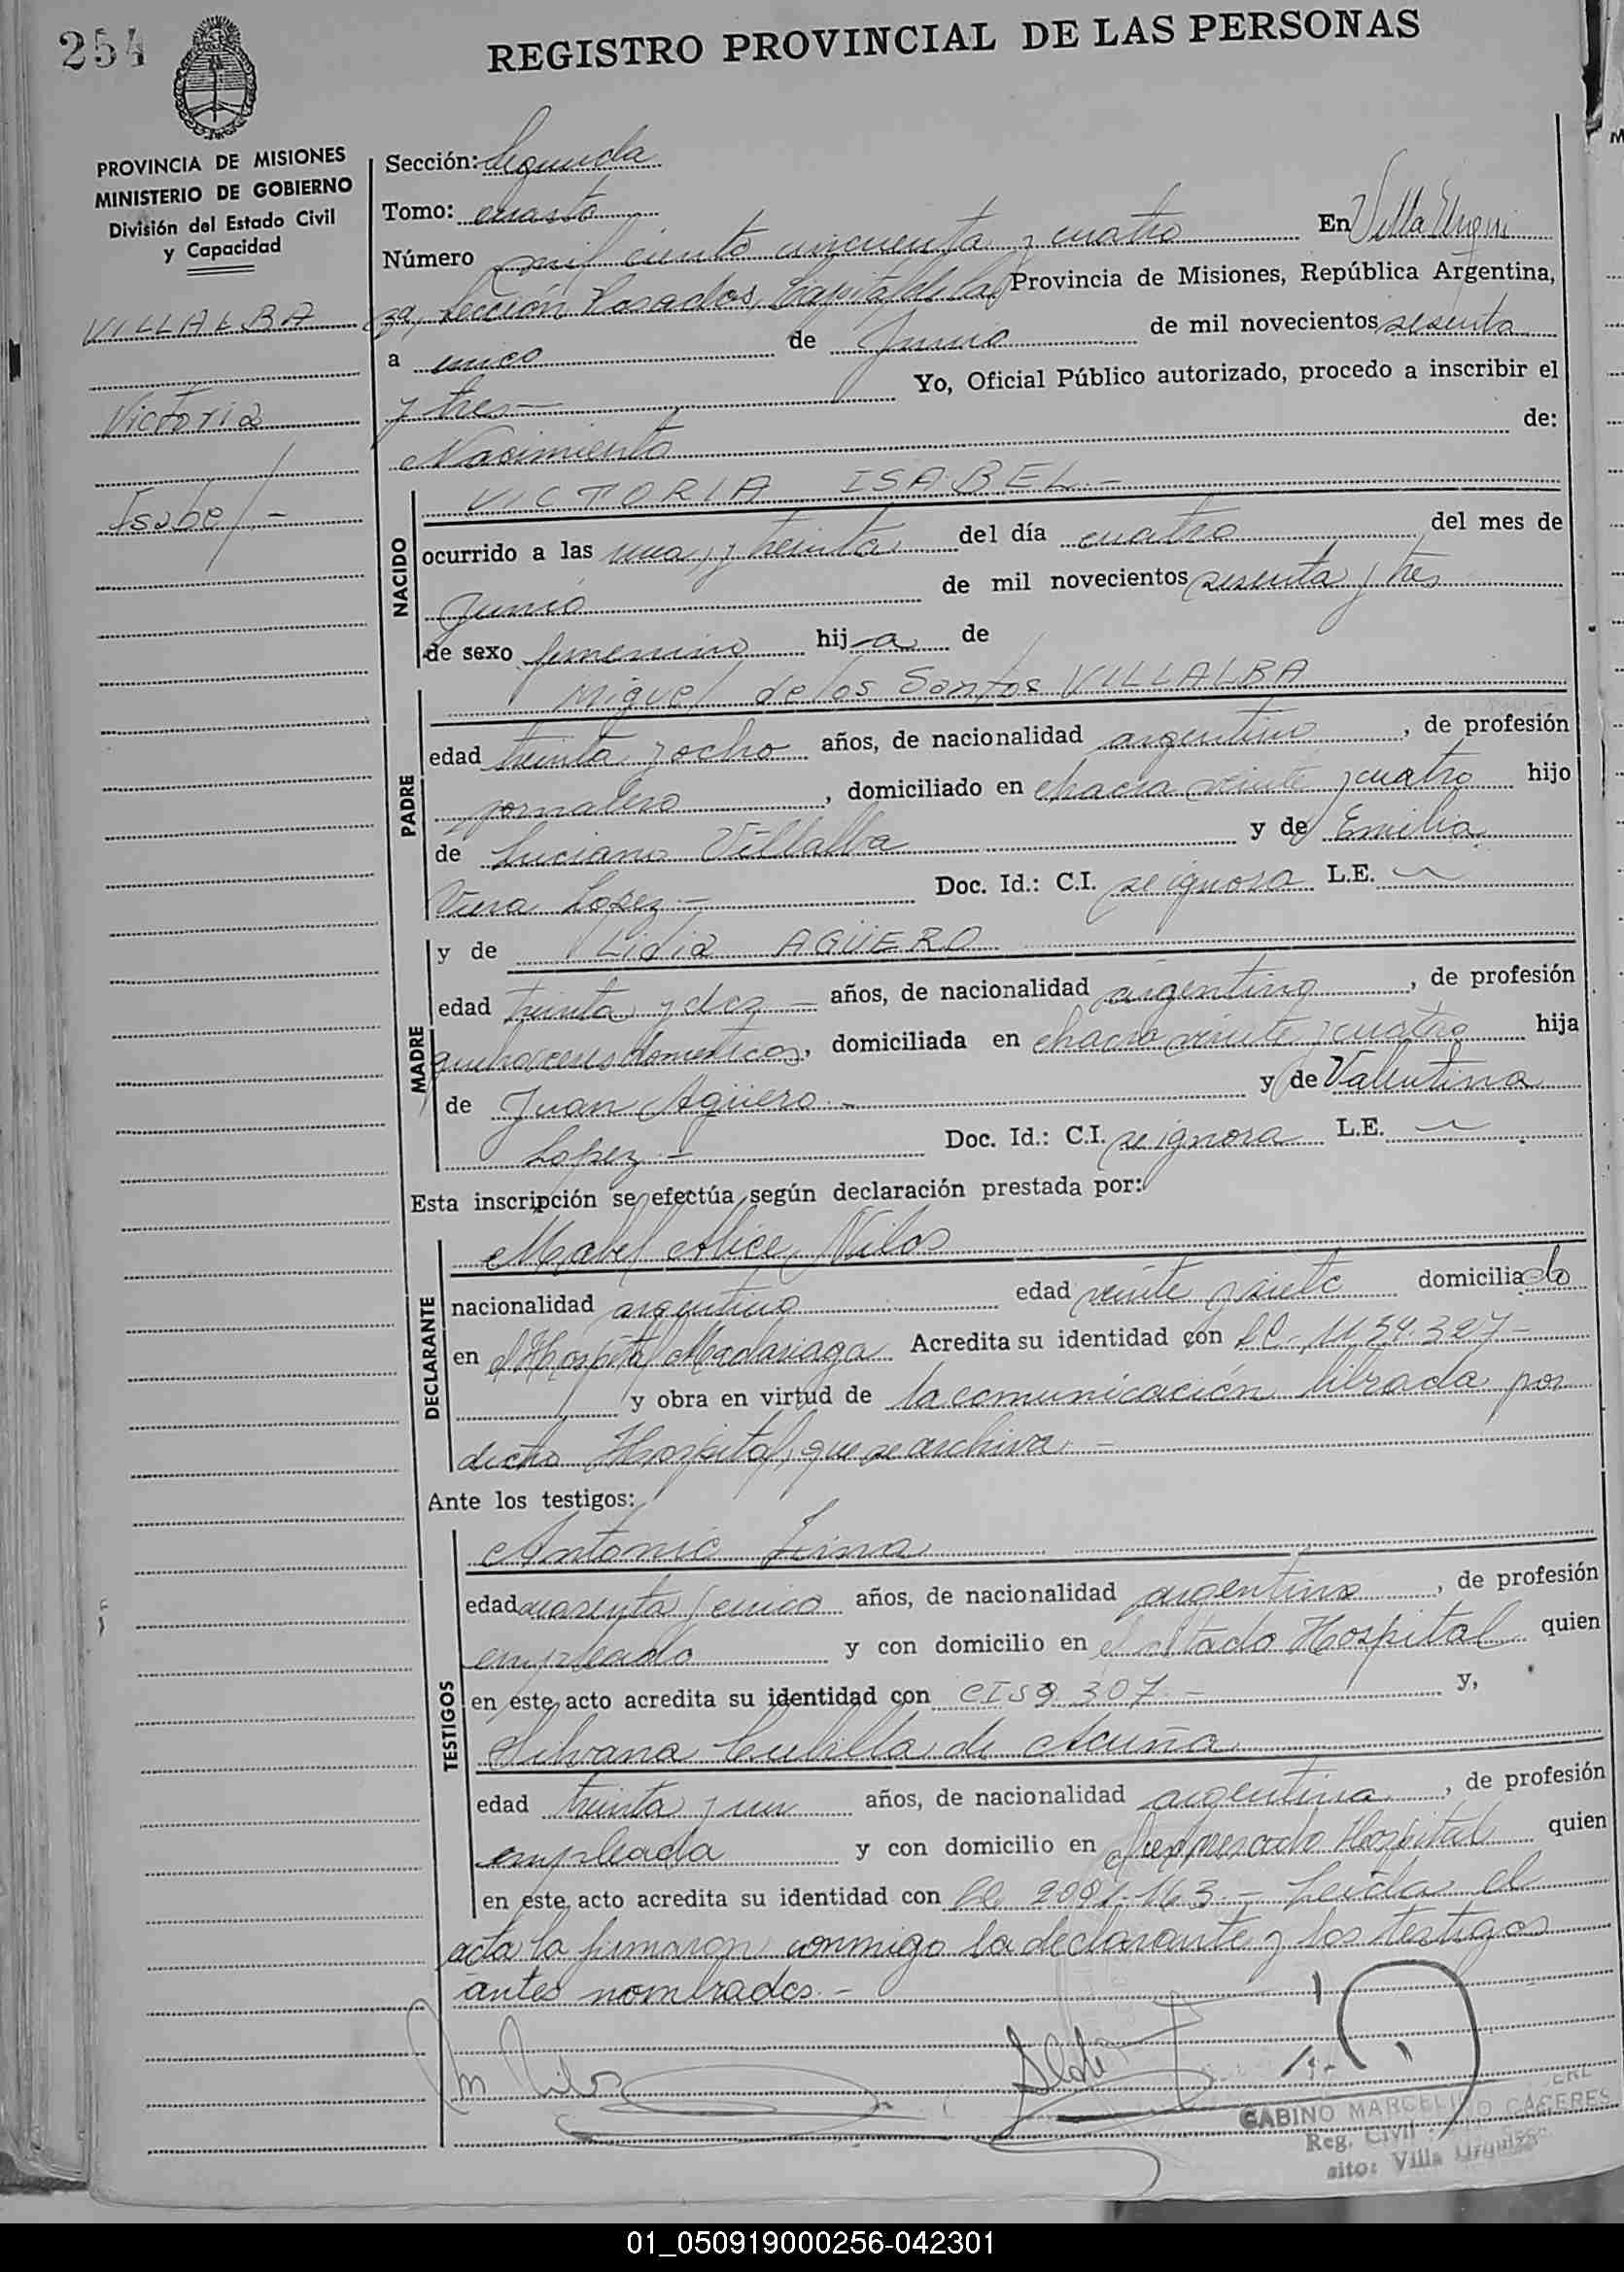 254
REGISTRO PROVINCIAL DE LAS PERSONAS
PROVINCIA DE MISIONES
MINISTERIO DE GOBIERNO
División del Estado Civil
y Capacidad
VILLALBA
Victoria
Isabel -
Sección: Segunda
Tomo: cuarto
Número mil ciento cincuenta y cuatro En Villa Urqui
za, Sección Posadas, Capital de la Provincia de Misiones, República Argentina,
a cinco de Junio de mil novecientos sesenta
y tres - Yo, Oficial Público autorizado, procedo a inscribir el
Nacimiento de:
NACIDO
VICTORIA ISABEL -
ocurrido a las una y treinta del día cuatro del mes de
Junio de mil novecientos sesenta y tres
de sexo femenino hija de
PADRE
Miguel de los Santos VILLALBA
edad treinta y ocho años, de nacionalidad argentino, de profesión
jornalero, domiciliado en chacra veinte y cuatro hijo
de Luciano Villalba y de Emilia
Viera Lopez - Doc. Id.: C.I. se ignora L.E.
MADRE
y de Lidia AGÜERO
edad treinta y dos - años, de nacionalidad argentina, de profesión
quehaceres domesticos, domiciliada en chacra veinte y cuatro hija
de Juan Agüero - y de Valentina
Lopez - Doc. Id.: C.I. se ignora L.E.
Esta inscripción se efectúa según declaración prestada por:
DECLARANTE
Mabel Alice Vilos
nacionalidad argentina edad veinte y siete domiciliada
en el Hospital Madariaga Acredita su identidad con
y obra en virtud de la comunicación librada por
dicho Hospital, que se archiva. -
Ante los testigos:
TESTIGOS
Antonio Lima
edad cuarenta y cinco años, de nacionalidad argentino, de profesión
empleado y con domicilio en el citado Hospital quien
en este acto acredita su identidad con CI 59.307 - y,
Silvana Cubilla de Acuña
edad treinta y un años, de nacionalidad argentina, de profesión
empleada y con domicilio en el expresado Hospital quien
en este acto acredita su identidad con Leida el
acta la firmaron conmigo la declarante y los testigos
antes nombrados. -
GABINO MARCELINO CACERES
Reg. Civil
sito: Villa Urquiza
01_050919000256-042301